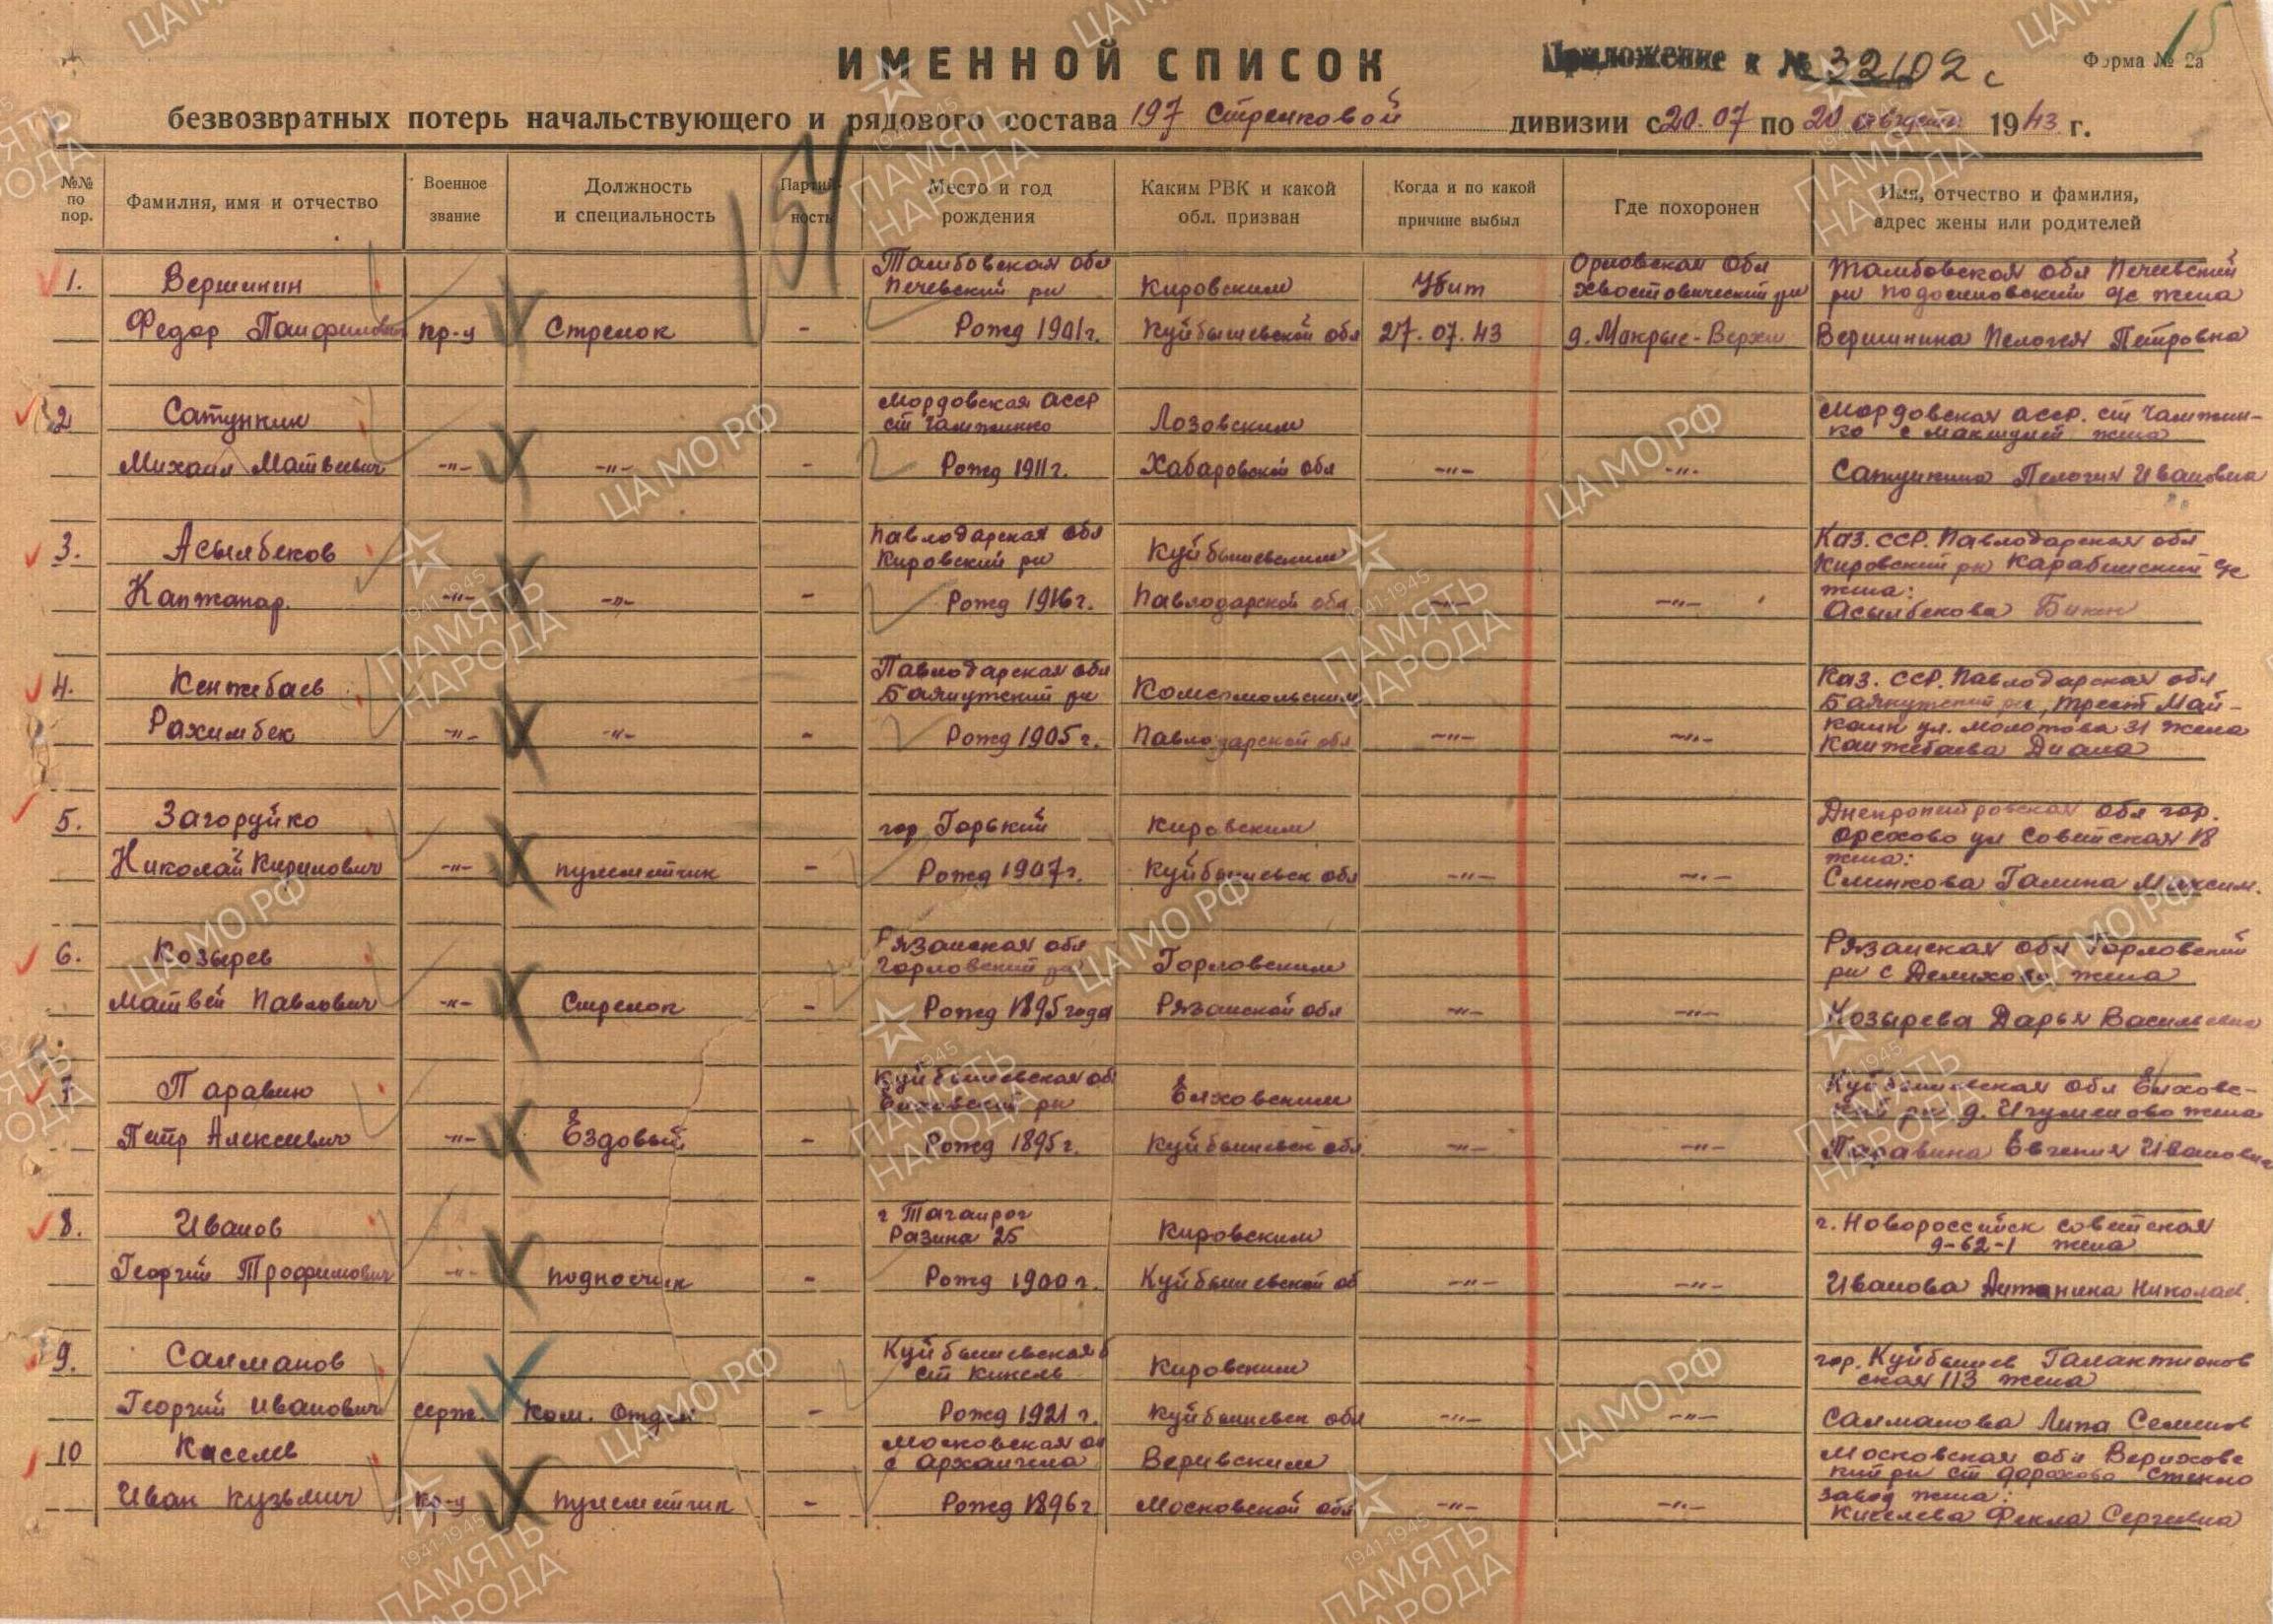 15
ИМЕННОЙ СПИСОК
Приложение к № 32102 с
Форма № 2а
безвозвратных потерь начальствующего и рядового состава 197 Стрелковой дивизии с 20.07 по 20 августа 1943 г.
154
№№ по пор. Фамилия, имя и отчество Военное звание Должность и специальность Партийность Место и год рождения Каким РВК и какой обл. призван Когда и по какой причине выбыл Где похоронен Имя, отчество и фамилия, адрес жены или родителей
Тамбовская обл Орловская Обл Тамбовская обл Пичевский
1. Вершинин Пичевский рн Кировским Убит Хвостовический рн рн Подосиновский с/с жена
Федор Панфилович кр-ц Стрелок - Рожд 1901г. Куйбышевской обл 27.07.43 д. Мокрые-Верхи Вершинина Пелогея Петровна
Мордовская АССР Мордовская АССР. ст
2 Сатункин ст Лозовским жена
Михаил Матвеевич -"- -"- - Рожд 1911г. Хабаровской обл -"- -"- Сатункина Пелогия Ивановна
Павлодарская обл Каз. ССР. Павлодарская обл
3. Асылбеков Кировский рн Куйбышевским Кировский рн Карабинский с/с
жена:
Капжапар. -"- -"- - Рожд 1916г. Павлодарской обл -"- -"- Асылбекова Бикен
Павлодарская обл Каз. ССР. Павлодарская обл
4. Кенжебаев Баянутский рн Комсомольским Баянутский рн, трест Май-
Рахимбек -"- -"- - Рожд 1905г. Павлодарской обл -"- -"- каин ул. Молотова 31 жена
Канжебаева Диана
Днепропетровская обл гор.
5. Загоруйко гор Горький Кировским Орехово ул Советская 18
жена:
Николай Кирилович -"- пулеметчик - Рожд 1907г. Куйбышевск обл -"- -"- Слинкова Галина Максим.
Рязанская обл Рязанская обл Горловский
6. Козырев Горловский рн Горловским рн с Делихово жена
Матвей Павлович -"- Стрелок - Рожд 1895 года Рязанской обл -"- -"- Козырева Дарья Васильевна
Куйбышевская об Куйбышевская обл Елховс-
7 Паравин Елховский рн Елховским кий рн д. Игуменово жена
Петр Алексеевич -"- Ездовый - Рожд 1895г. Куйбышевск обл -"- -"- Паравина Евгения Ивановна
г Таганрог г. Новороссийск Советская
8. Иванов Разина 25 Кировским 9-62-1 жена
Георгий Трофимович -"- подносчик - Рожд 1900г. Куйбышевской об -"- -"- Иванова Антанина Николаев.
Куйбышевская гор. Куйбышев Галактионов
9. Салманов ст Кинель Кировским ская 113 жена
Георгий Иванович серж. Ком. Отдел - Рожд 1921г. Куйбышевск обл -"- -"- Салманова Липа Семенов
Московская об Московская обл
10 Киселев с Архангела Веривским кий рн ст Дорохово Стекло
завод жена:
Иван Кузьмич кр-ц пулеметчик - Рожд 1896г Московской обл -"- -"- Киселева Фекла Сергеевна
ЦА МО РФ
1941-1945
ПАМЯТЬ
НАРОДА